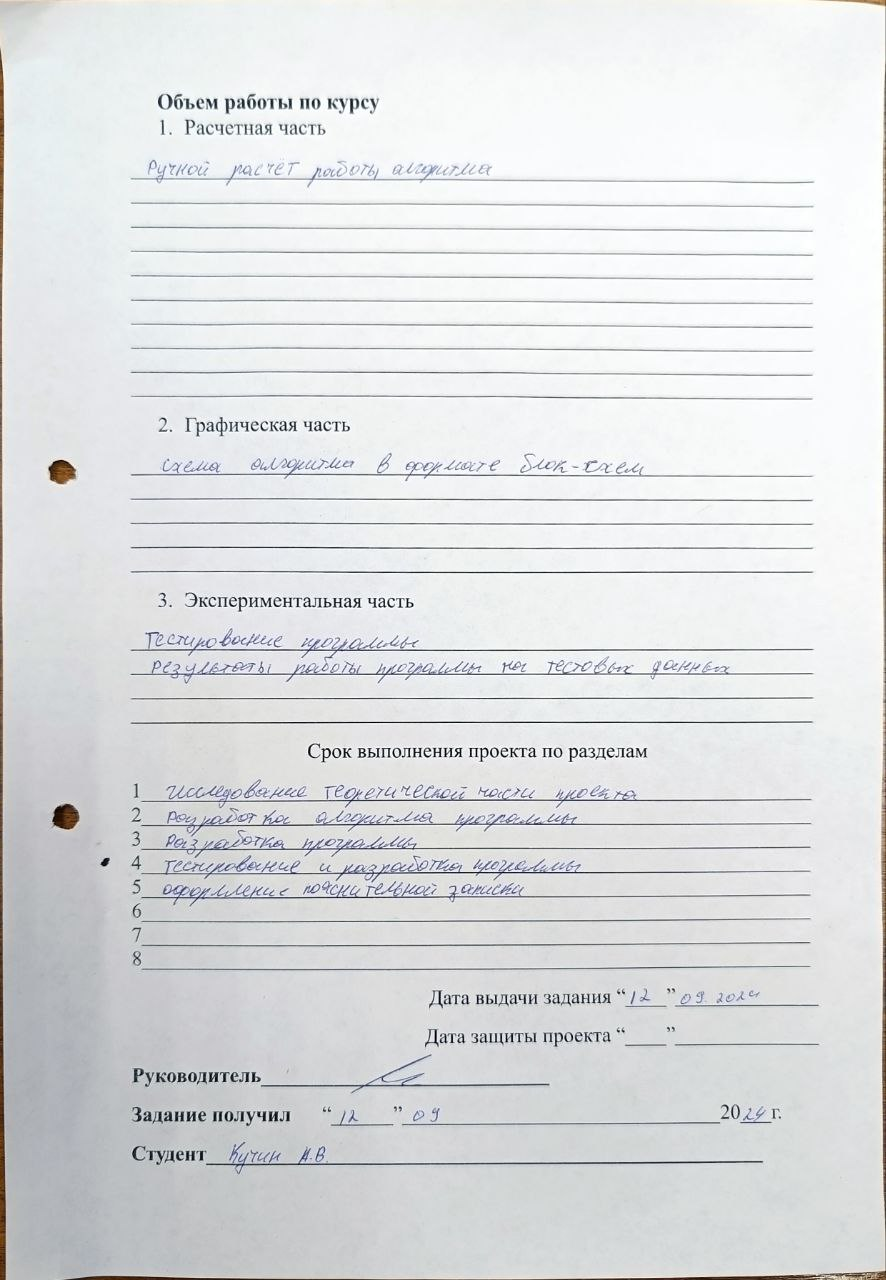 Объем работы по курсу
1. Расчетная часть
Ручной расчёт работы алгоритма
2. Графическая часть
схема алгоритма в формате блок-схем
3. Экспериментальная часть
Тестирование программы
Результаты работы программы на тестовых данных
Срок выполнения проекта по разделам
1 Исследование теоретической части проекта
2 Разработка алгоритма программы
3 Разработка программы
4 Тестирование и разработка программы
5 оформление пояснительной записки
6
7
8
Дата выдачи задания “12” 09. 2024
Дата защиты проекта “ ”
Руководитель
Задание получил “12” 09 2024 г.
Студент Кучин А.В.